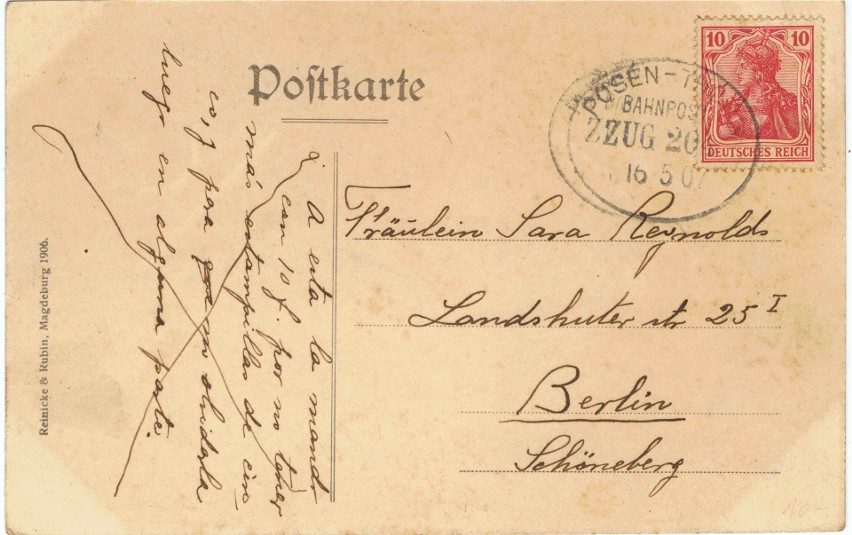 Poſtkarte
10 10
DEUTSCHES REICH
POSEN-
BAHNPOS
ZUG 20
16 5 07
Fräulein Sara Reynolds
Landshuter str 25 I
Berlin
Schöneberg
A esta la mando
con 10 f. por no tener
más estampillas de cin
co, y para no olvidarla
luego en alguna parte.
Reinicke & Rubin, Magdeburg 1906.
10-